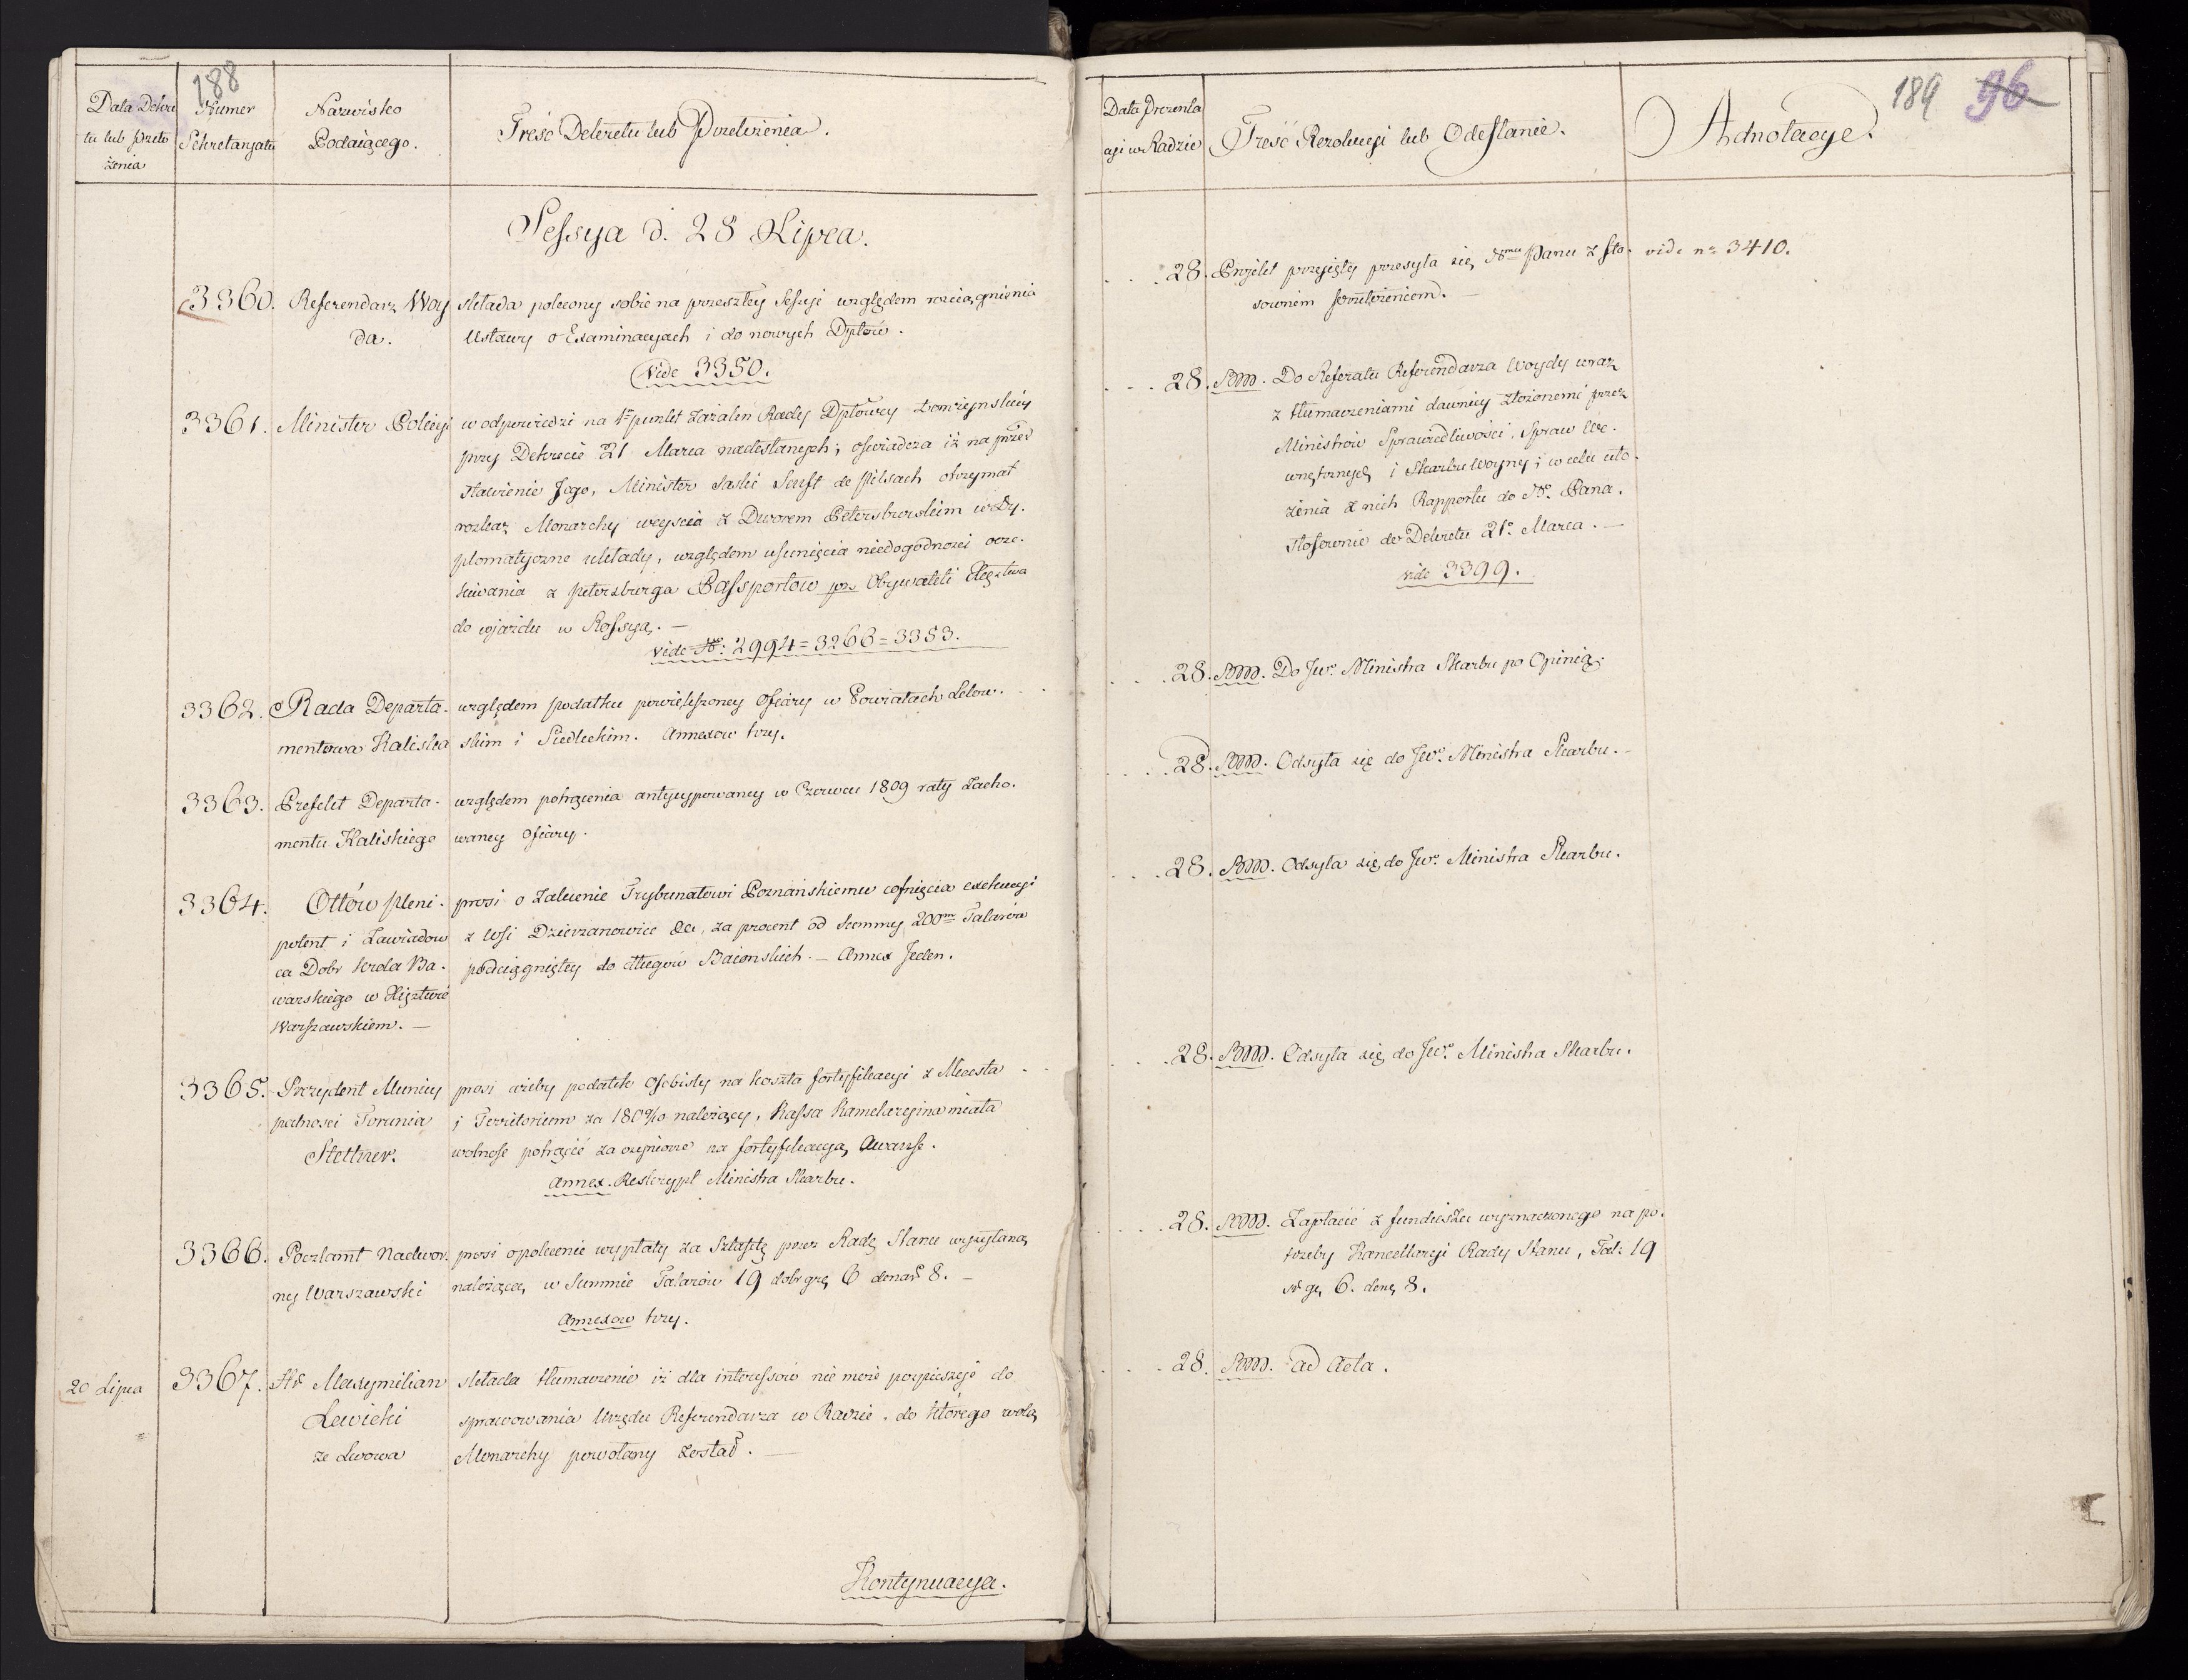 188
Data Dekre
tu lub przeło
żenia
Numer
Sekretaryatu
Nazwisko
Podaiącego.
Treść Dekretu lub Przełożenia.
Sessya d. 28 Lipca.
3360. Referendarz Woy
da.
składa polecony sobie na przeszłey Sessyi względem rozciągnienia
Ustawy o Examinacyach i do nowych Dptów.
Vide 3350.
3361. Minister Policyi
w odpowiedzi na 1. punkt Zażaleń Rady Dptowey Łomżynskiey
przy Dekrecie 21 Marca nadesłanych; oświadcza iż na przed
stawienie Jego, Minister Saski Senft de Pilsach otrzymał
rozkaz Monarchy weyścia z Dworem Petersburskim w Dy.
plomatyczne układy, względem usunięcia niedogodności ocze.
kiwania z Petersburga Passportow prz Obywateli Xięztwa
do wjazdu w Rossyą. —
vide N: 2994 = 3266 = 3353.
3362. Rada Departa.
mentowa Kaliska
względem podatku powiększoney Ofiary w Powiatach Lelow.
skim i Siedleckim. Annexow trzy.
3363. Prefekt Departa.
mentu Kaliskiego
względem potrącenia antycypowaney w Czerwcu 1809 raty Zacho.
waney Ofiary.
3364. Ottów Pleni.
potent i Zawiadow
ca Dobr Krola Ba.
warskiego w Xięztwie
Warszawskiem. —
prosi o Zalecenie Trybunałowi Poznańskiemu cofnięcia exekucyi
z Wsi Dzierzanowice &c, za procent od Summy 200m Talarów
podciągniętey do długów Baionskich. — Annex Jeden.
3365. Prezydent Municy
palnosci Torunia
Stettner.
prosi ażeby podatek Osobisty na koszta fortyfikacyi z Miasta
i Territorium za 1809/10 należący, Kassa Kamelaryina miała
wolność potrącić za czynione na fortyfikacyą Awanse.
Annex. Reskrypt Ministra Skarbu.
3366. Pocztamt Nadwor.
ny Warszawski
prosi o polecenie wypłaty za Sztafetę przez Radę Stanu wysyłaną
należącą, w Summie Talarów 19 dobr grę 6 denar 8. —
Annexow trzy.
20 Lipca
3367. Hr Maxymilian
Lewicki
ze Lwowa
składa tłumaczenie iż dla interessów nie może pospieszyć do
sprawowania Urzędu Referendarza w Radzie, do którego wolą
Monarchy powołany został. —
Kontynuacya.
189 96
Data Prezenta
cyi w Radzie
Treść Rezolucyi lub Odesłanie.
Adnotacye.
28. Projekt przyjęty przesyła się Nmu Panu z sto.
sownem przełożeniem. —
vide nr 3410.
28. Do Referatu Referendarza Woydy wraz
z tłumaczeniami dawniey złożonemi przez
Ministrów Sprawiedliwości, Spraw We.
wnętrznych i Skarbu Woyny; w celu uło.
żenia z nich Rapportu do N. Pana,
stosownie do Dekretu 21. Marca. —
vide 3399.
28. Do Jw. Ministra Skarbu po Opinią.
28. Odsyła się do Jw. Ministra Skarbu. —
28. Odsyła się do Jw. Ministra Skarbu.
28. Odsyła się do Jw. Ministra Skarbu.
28. Zapłacić z funduszu wyznaczonego na po.
trzeby Kancellaryi Rady Stanu, Tal: 19
6. 8.
28. ad Acta.